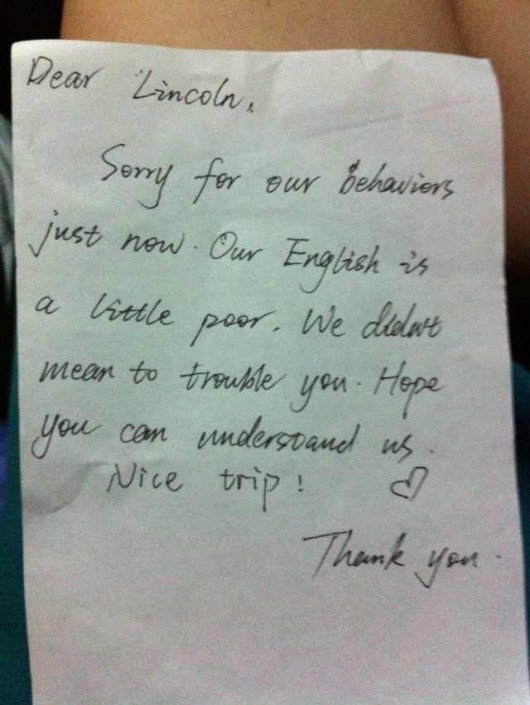 Dear Lincoln,
Sorry for our behaviors
just now. Our English is
a little poor. We didn't
mean to trouble you. Hope
you can understand us.
Nice trip! ♡
Thank you.